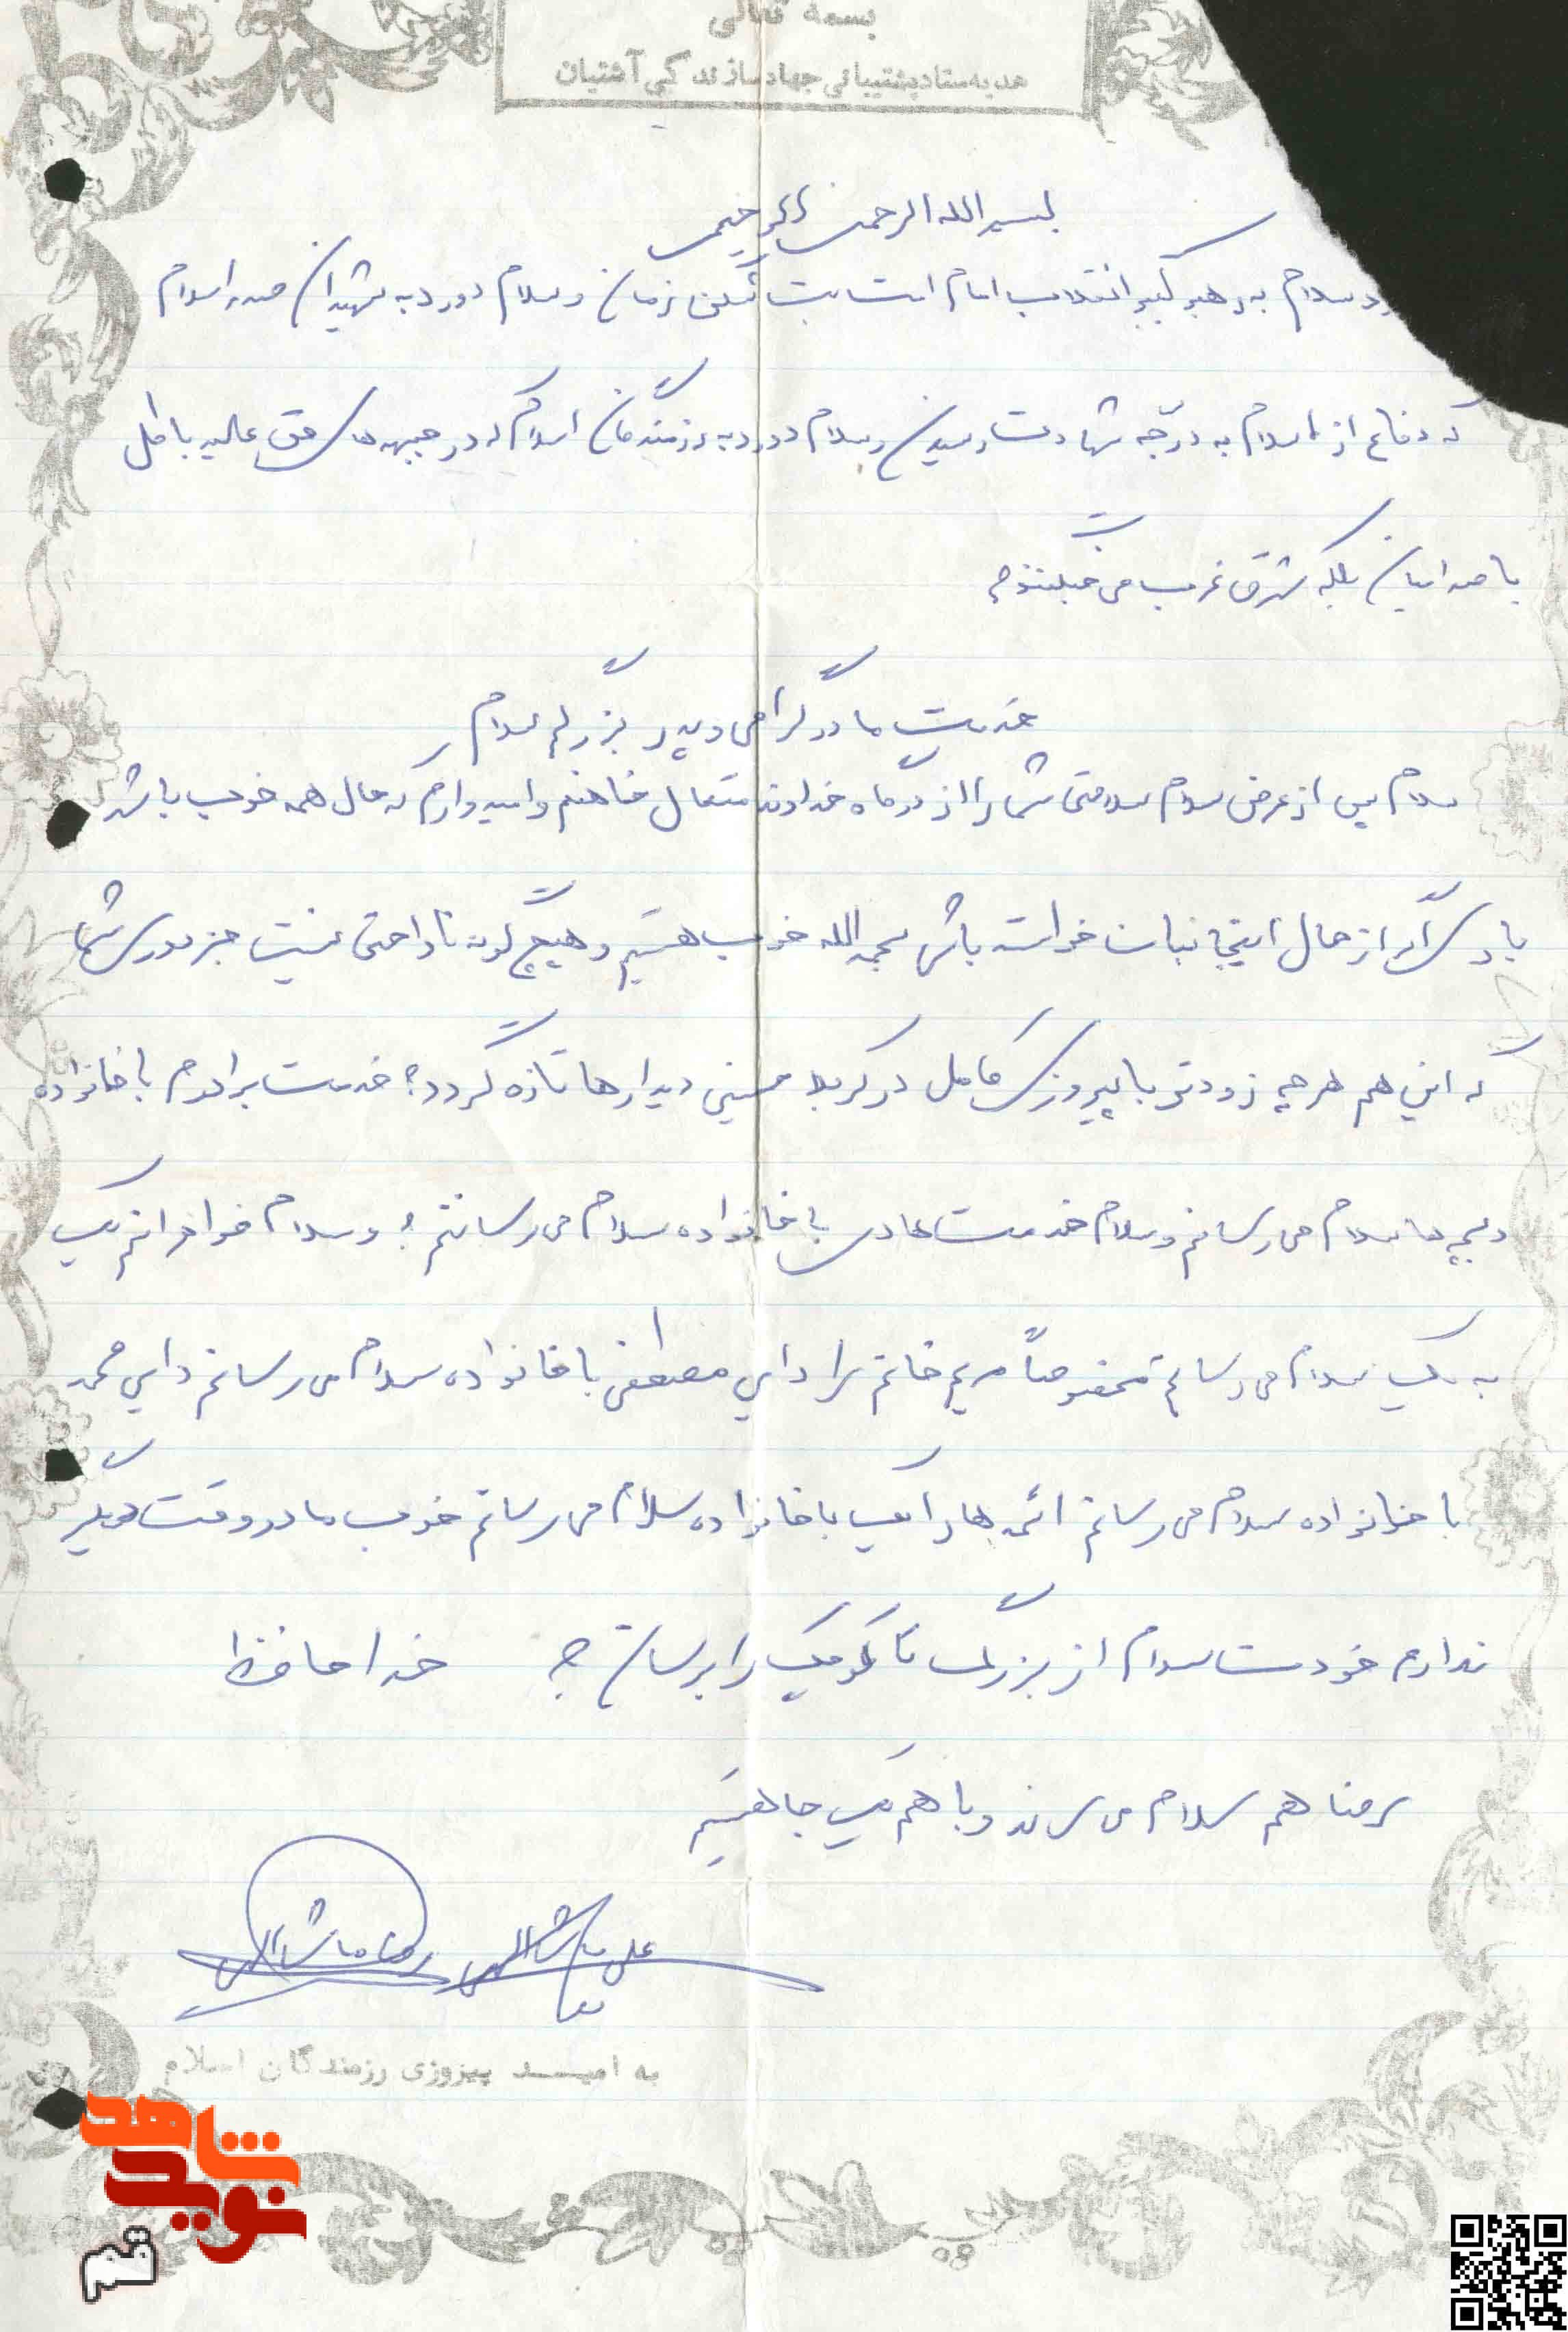 بسمه تعالی
هدیه ستاد پشتیبانی جهاد سازندگی آشتیان
بسم الله الرحمن الرحیم
سلام به رهبر کبیر انقلاب امام امت بت شکن زمان و سلام درود به شهیدان صدر اسلام
که دفاع از اسلام به درجه شهادت رسیدن و سلام درود به رزمندگان اسلام که در جبهه های حق علیه باطل
با صدامیان بلکه شرق غرب می جنگند
خدمت مادر گرامی و پدر بزرگم سلام
سلام پس از عرض سلام سلامتی شما را از درگاه خداوند متعال خاهنم و امیدوارم که حال همه خوب باشد
باری اگر از حال اینجانبان خواسته باشی بحمدالله خوب هستیم و هیچ گونه ناراحتی نیست جز دوری شما
که این هم هر چه زودتر با پیروزی کامل در کربلا حسینی دیدارها تازه گردد خدمت برادرم با خانواده
و بچه ها سلام می رسانم و سلام خدمت هادی با خانواده سلام می رسانم و سلام خواهرانم یک
به یک سلام می رسانم مخصوصاً مریم خانم را دایی مصطفی با خانواده سلام می رسانم دایی محمد
با خانواده سلام می رسانم با خانواده سلام می رسانم خوب مادر وقت دیگر
ندارم خودت سلام از بزرگ تا کوچیک را برسان خداحافظ
رضا هم سلام می رساند و با هم یک جا هستیم
علی ماشاالهی رضا ماشاالهی
به امید پیروزی رزمندگان اسلام
نوید شاهد
قم